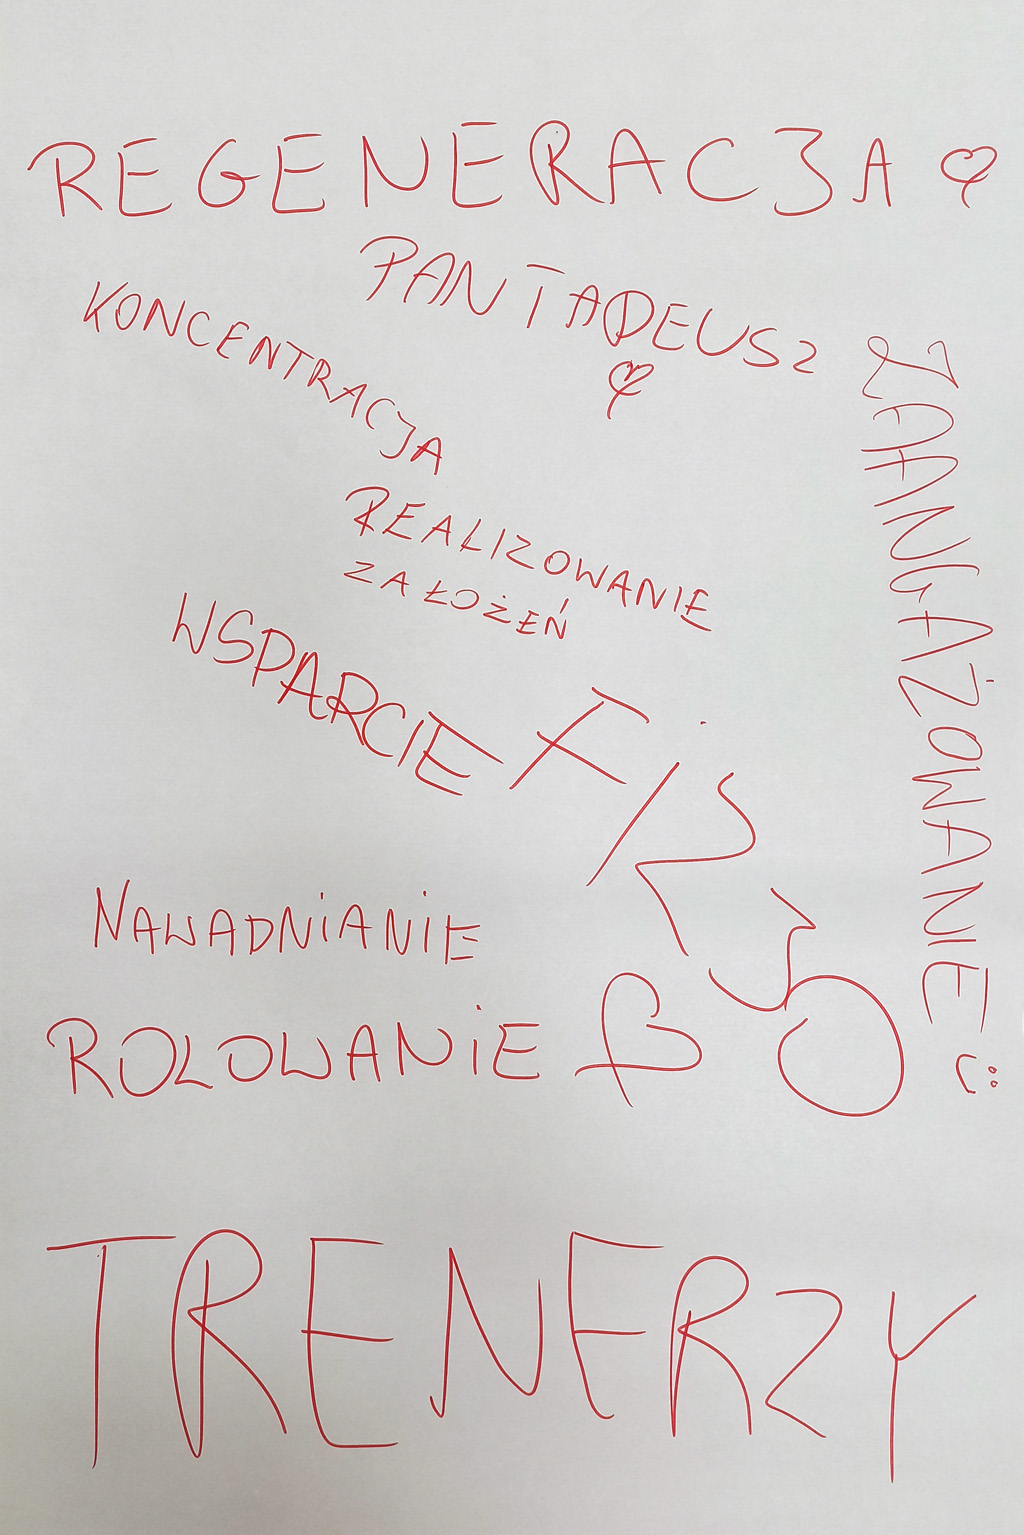 REGENERACJA
PAN TADEUSZ
KONCENTRACJA
ZAANGAŻOWANIE
REALIZOWANIE
ZAŁOŻEŃ
WSPARCIE
FIZJO
NAWADNIANIE
ROLOWANIE
TRENERZY